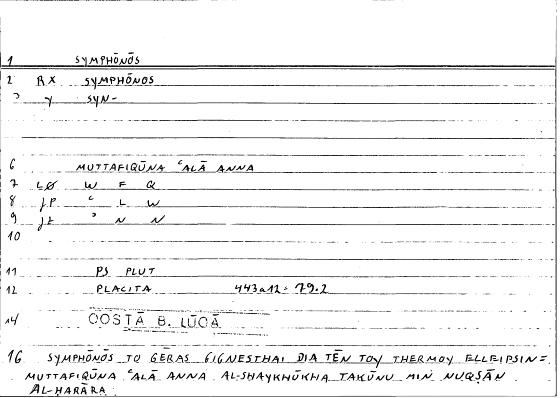 1 SYMPHŌNŌS
2 RX SYMPHŌNOS
Y SYN-
6 MUTTAFIQŪNA ʿALĀ ANNA
7 LØ W F Q
8 JP ʿ L W
9 JL ʾ N N
10
11 PS PLUT
12 PLACITA 443a12= 79.2
14 QOSTĀ B. LŪQĀ
16 SYMPHŌNŌS TO GĒRAS GIGNESTHAI DIA TĒN TOY THERMOY ELLEIPSIN=
MUTTAFIQŪNA ʿALĀ ANNA AL-SHAYKHŪKHA TAKŪNU MIN NUQṢĀN
AL-ḤARĀRA.